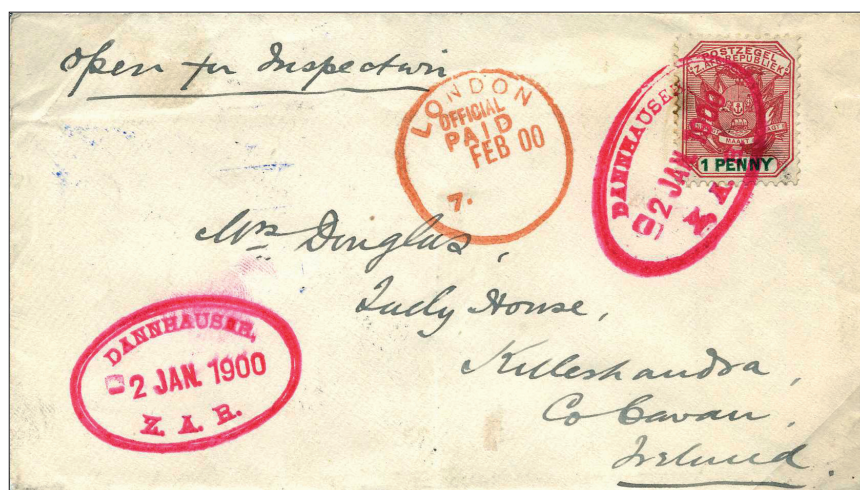 Open for Inspection
LONDON
OFFICIAL
PAID
FEB 00
7.
POSTZEGEL
Z. AFR. REPUBLIEK
1 PENNY
DANNHAUSER,
2 JAN. 1900
Z. A. R.
Mrs Douglas,
House,
Killeshandra,
Co Cavan,
Ireland.
DANNHAUSER,
2 JAN. 1900
Z. A. R.